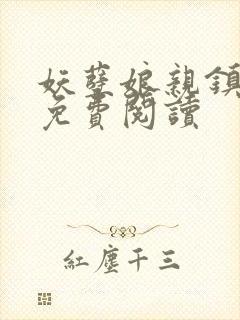 妖孽娘親鎮
免費閱讀
紅塵千三